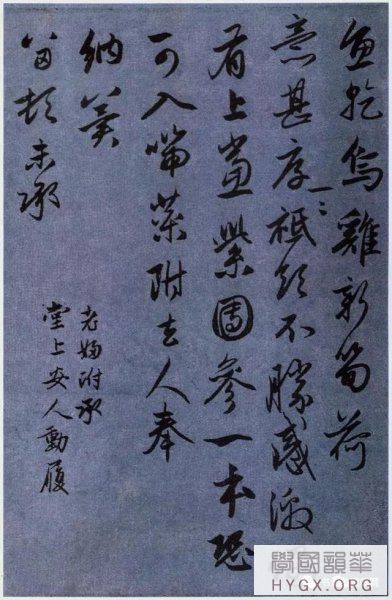 魚乾烏雞新笋荷
意甚厚〻祗領不勝感激
有上黨紫團參一本恐
可入喘藥附去人奉
納冀
留頓未承
老婦附承
堂上安人動履
學國韻華
HYGX.ORG